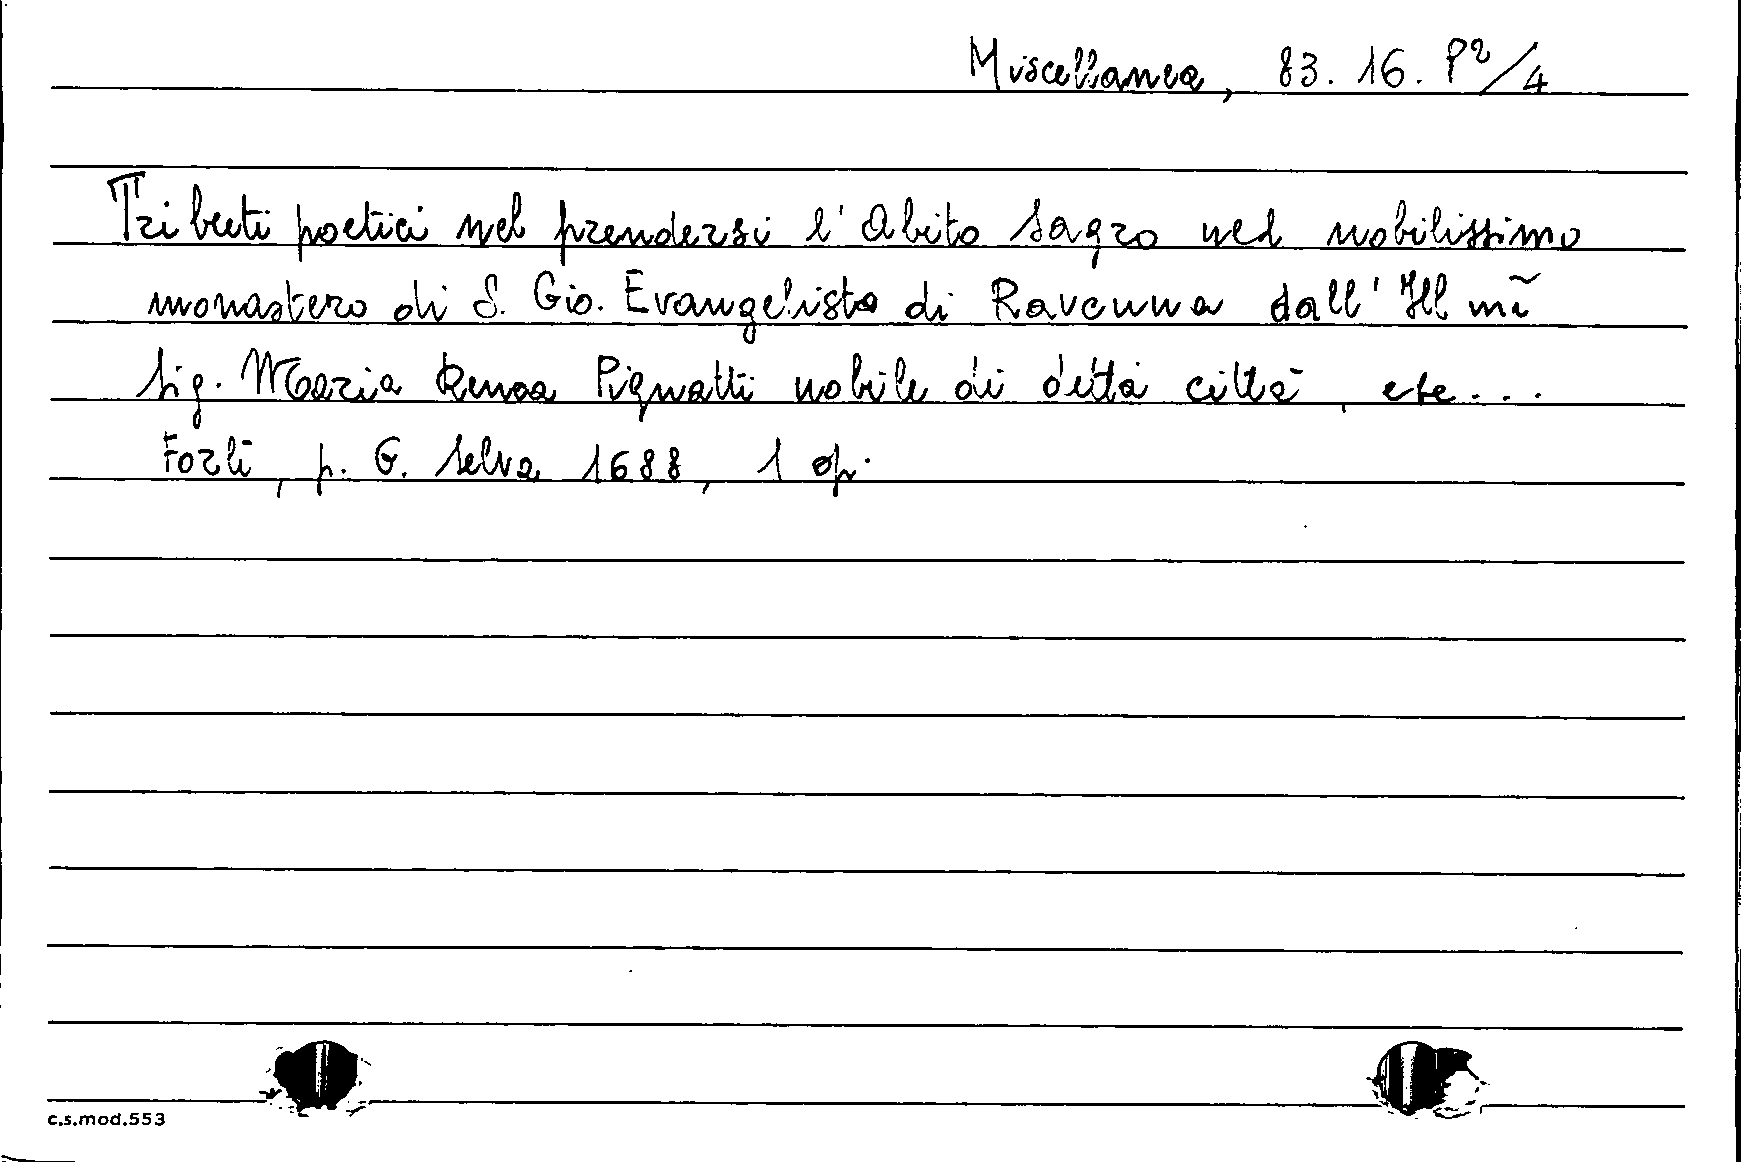 Miscellanea, 83. 16. P²/4
Tributi poetici nel prendersi l'Abito sagro nel nobilissimo
monastero di S. Gio. Evangelista di Ravenna dall'Ill mĩ
Sig. Maria Pignatti nobile di detta città, ete...
Forlì, p. G. Selva 1688, 1 op.
c.s.mod.553